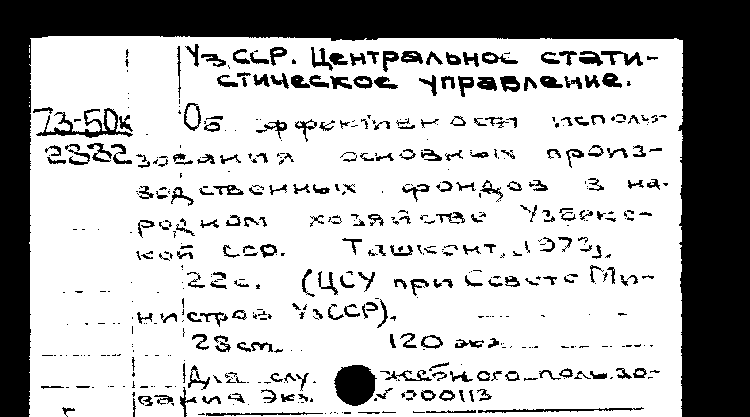 УзССР. Центральное стати-
стическое управление.
73-50к Об эффективности исполь-
2882 зования основных произ-
водственных фондов в на-
родном хозяйстве Узбекс-
кой ССР. Ташкент, 1973.
22с. (ЦСУ при Совете Ми-
нистров УзССР).
28см. 120 экз.
Для служебного пользо-
вания Экз. № 000113